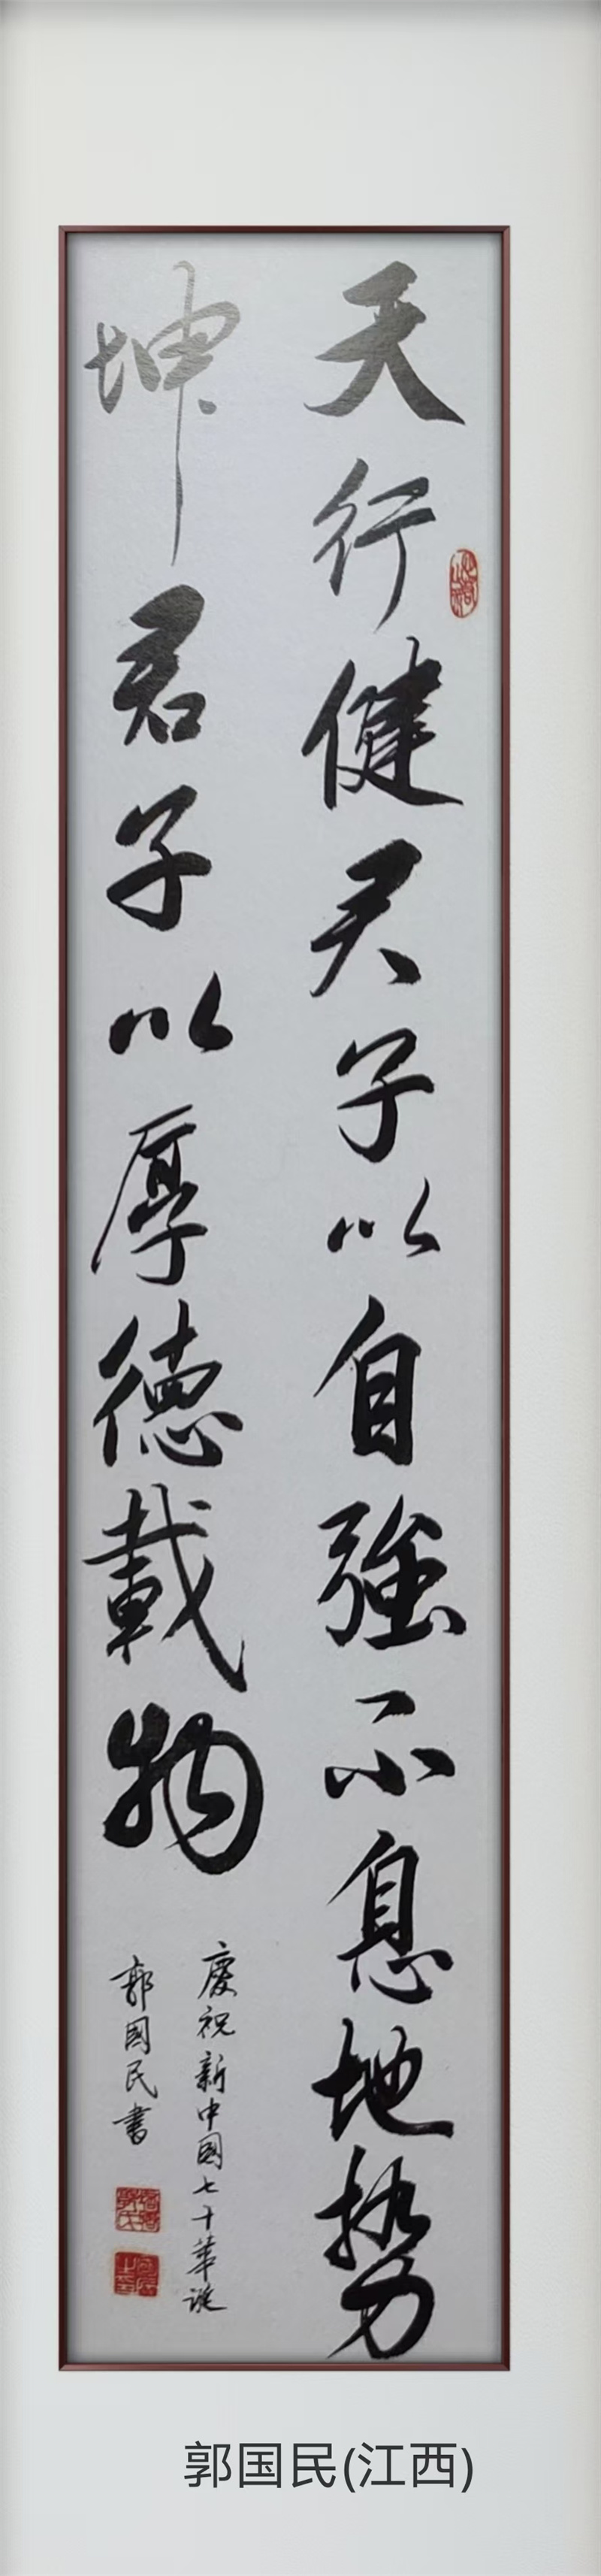 天行健君子以自強不息地势
坤君子以厚德載物
慶祝新中国七十華誕
郭國民書
郭国民(江西)